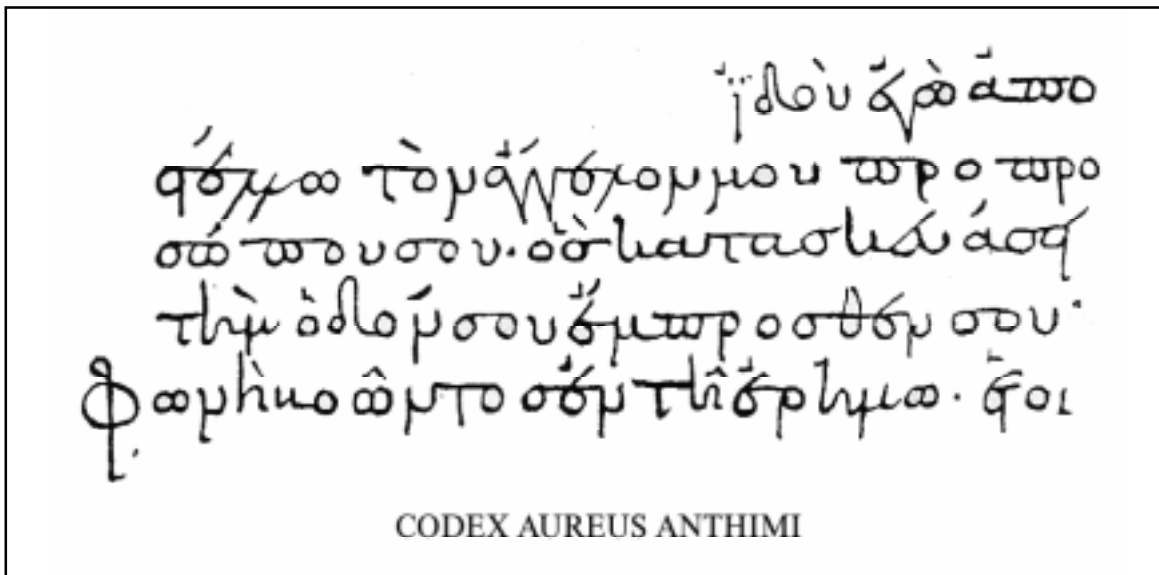 ἰδοὺ ἐγὼ ἀπο
στέλλω τὸν ἄγγελον μου πρὸ προ
σώπου σου· ὃς κατασκευάσει
τὴν ὁδόν σου ἔμπροσθέν σου·
Φωνὴ βοῶντος ἐν τῆ ἐρήμω· ἑτοι
CODEX AUREUS ANTHIMI